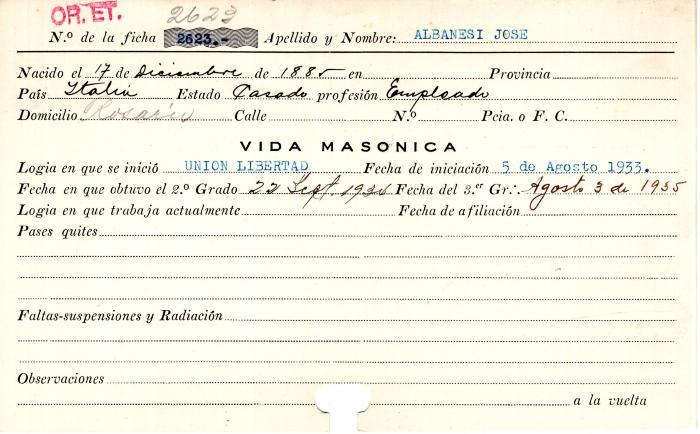 OR. ET. 2623
N.º de la ficha 2623.- Apellido y Nombre: ALBANESI JOSE
Nacido el 17 de Diciembre de 1885 en Provincia
País Italia Estado Casado profesión Empleado
Domicilio Rosario Calle N.º Pcia. o F. C.
VIDA MASONICA
Logia en que se inició UNION LIBERTAD Fecha de iniciación 5 de Agosto 1933.
Fecha en que obtuvo el 2.º Grado 22 Sept. 1934 Fecha del 3.er Gr∴ Agosto 3 de 1935
Logia en que trabaja actualmente Fecha de afiliación
Pases quites
Faltas-suspensiones y Radiación
Observaciones
a la vuelta